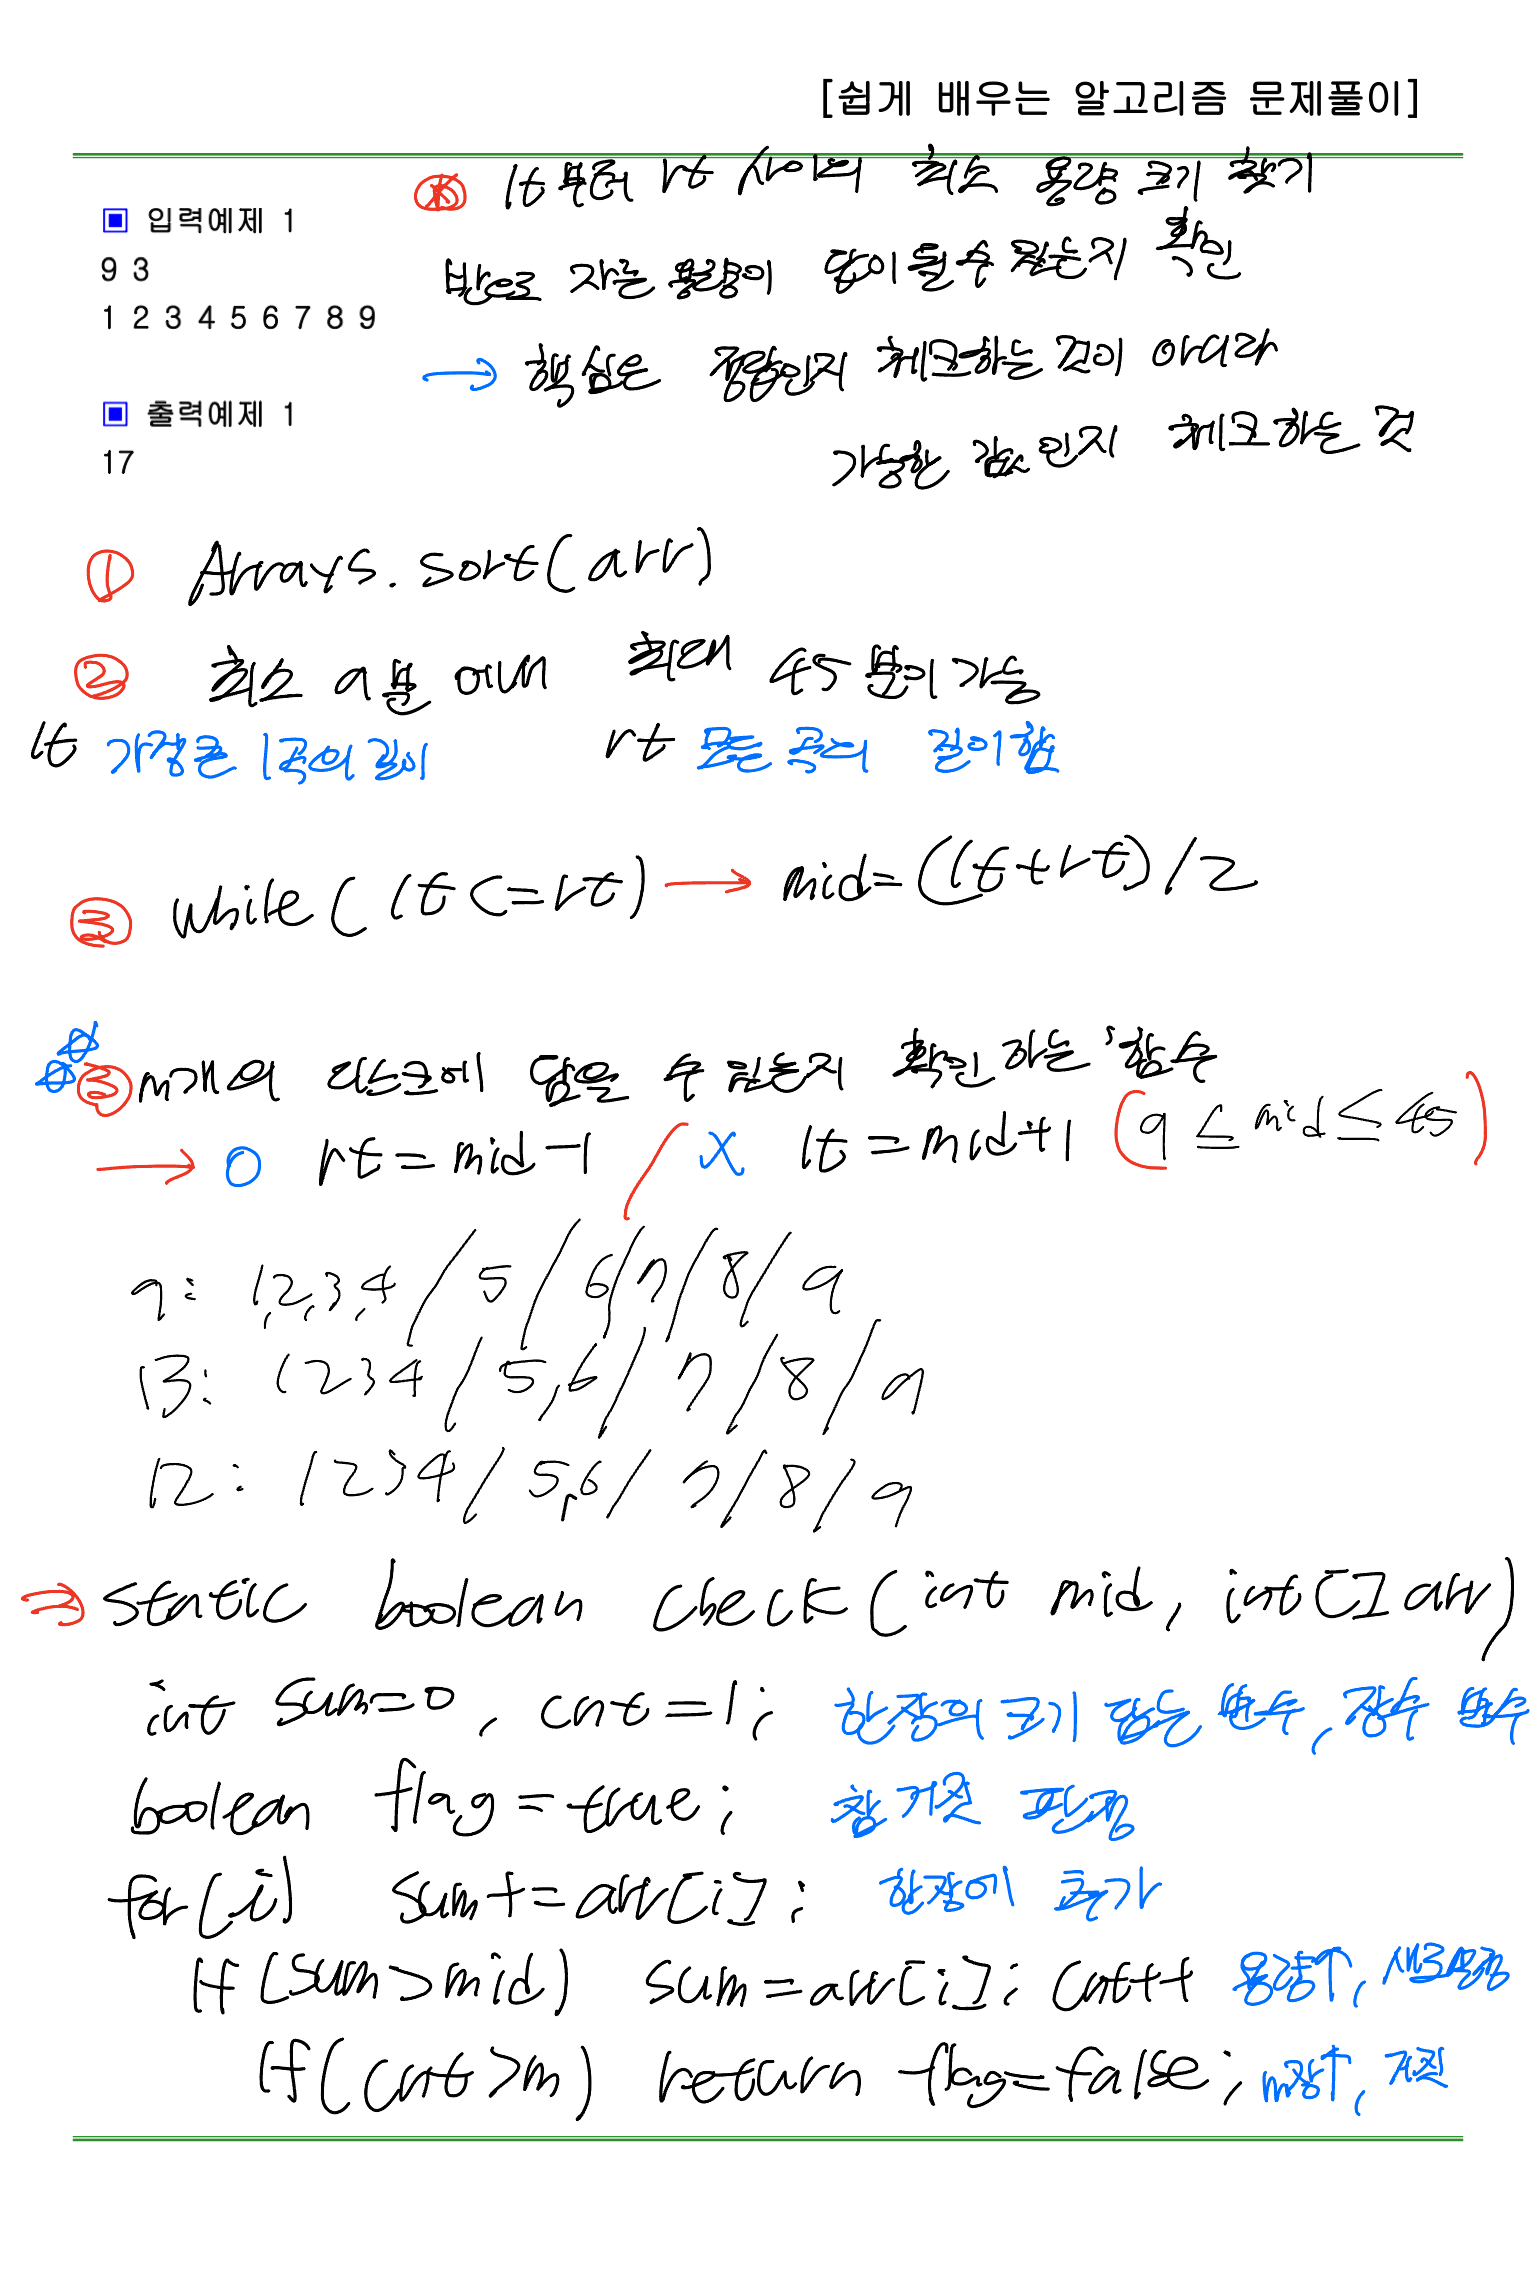 [쉽게 배우는 알고리즘 문제풀이]
▣ 입력예제 1
9 3
1 2 3 4 5 6 7 8 9
▣ 출력예제 1
17
lt부터 rt 사이의 최소 용량 크기 찾기
반으로 자른 용량이 답이 될 수 있는지 확인
→ 핵심은 정답인지 체크하는 것이 아니라
가능한 값인지 체크하는 것
① Arrays.sort(arr)
② 최소 9분 에서 최대 45분이 가능
lt 가장 큰 1곡의 길이 rt 모든 곡의 길이 합
③ while(lt<=rt) → mid=(lt+rt)/2
☆☆③ m개의 디스크에 담을 수 있는지 확인하는 함수
→ O rt=mid-1 / X lt=mid+1 (9≤mid≤45)
9: 1,2,3,4 / 5 / 6 / 7 / 8 / 9
13: 1 2 3 4 / 5,6 / 7 / 8 / 9
12: 1 2 3 4 / 5,6 / 7 / 8 / 9
⇒ static boolean check(int mid, int[] arr)
int sum=0, cnt=1; 한장의 크기 담는 변수, 장수 변수
boolean flag=true; 참 거짓 판정
for(i) sum+=arr[i]; 한장에 추가
if(sum>mid) sum=arr[i]; cnt++ 용량↑,
if(cnt>m) return flag=false; m장↑, 거짓